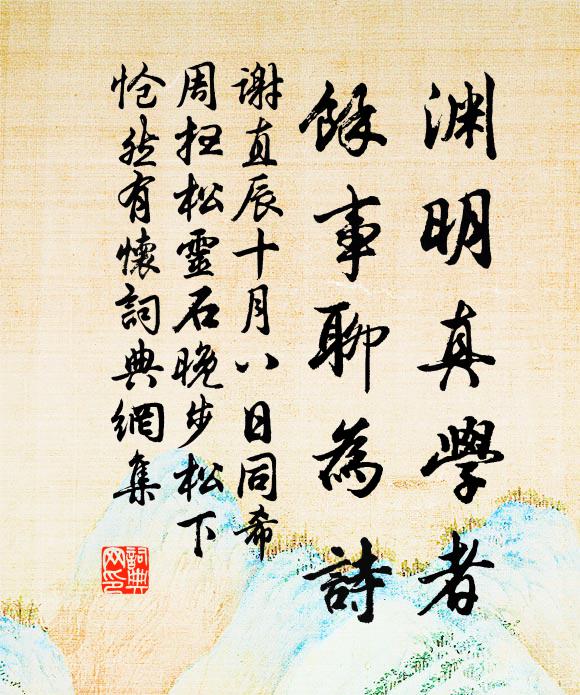 渊明真學者
餘事聊為詩
谢直辰十月八日同希
周拄松靈石晚步松下
怆然有懷詞典網集
詞典网印